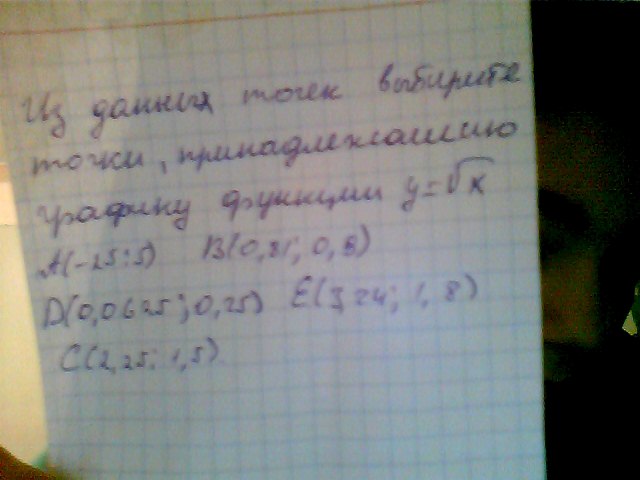 Из данных точек выбирите
точки, принадлежащию
графику функции y=√x
A(-25;5) B(0,81; 0,8)
D(0,0625;0,25) E(3,24; 1,8)
C(2,25; 1,5)